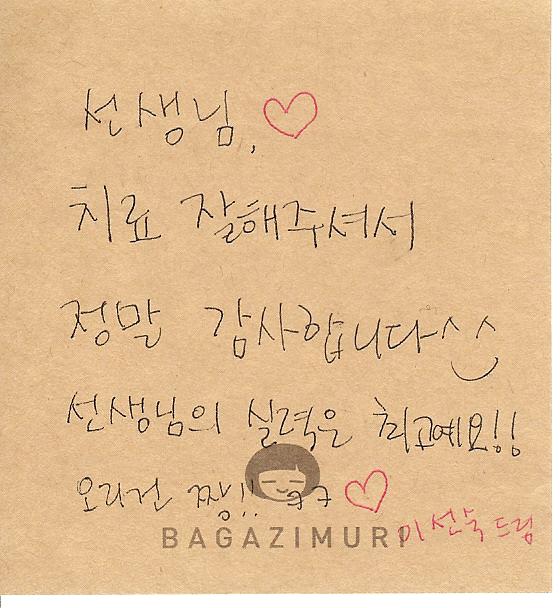 선생님, ♡
치료 잘해주셔서
정말 감사합니다^^
선생님의 실력은 최고예요!!
오리건 짱!! ㅋㅋ ♡
BAGAZIMURI
이선숙 드림